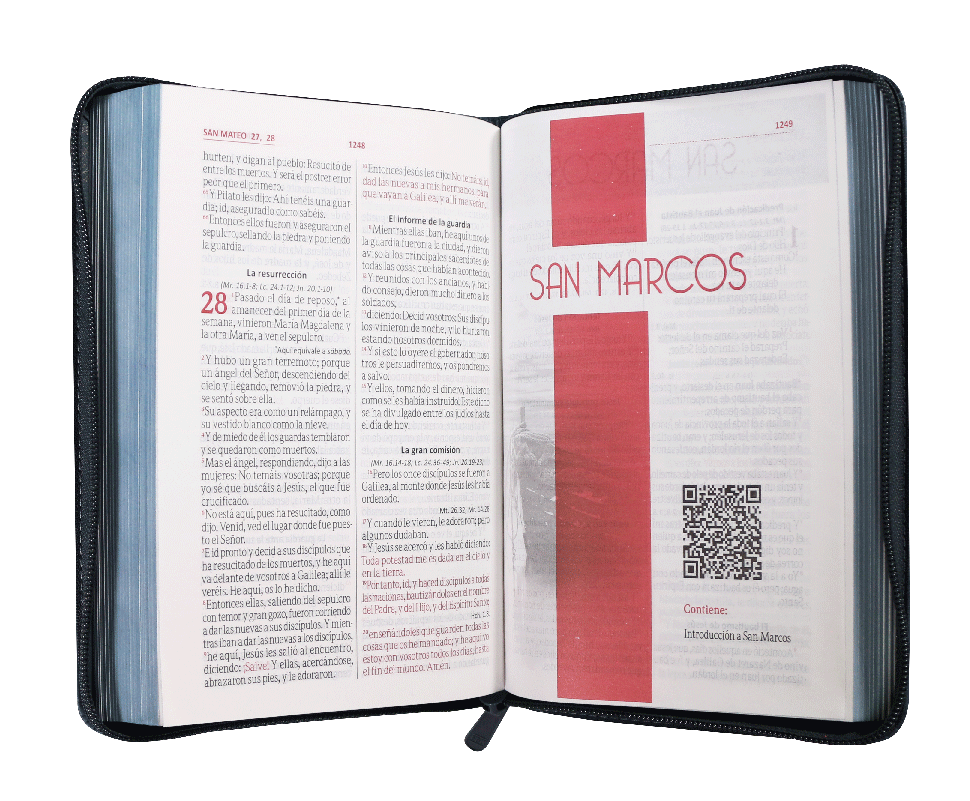 SAN MATEO 27, 28
1248
hurten, y digan al pueblo: Resucitó de
entre los muertos. Y será el postrer error
peor que el primero.
65Y Pilato les dijo: Ahí tenéis una guar
dia; id, aseguradlo como sabéis.
66Entonces ellos fueron y aseguraron el
sepulcro, sellando la piedra y poniendo
la guardia.
La resurrección
(Mr. 16.1-8; Lc. 24.1-12; Jn. 20.1-10)
28 1Pasado el día de reposo,* al
amanecer del primer día de la
semana, vinieron María Magdalena y
la otra María, a ver el sepulcro.
*Aquí equivale a sábado.
2Y hubo un gran terremoto; porque
un ángel del Señor, descendiendo del
cielo y llegando, removió la piedra, y
se sentó sobre ella.
3Su aspecto era como un relámpago, y
su vestido blanco como la nieve.
4Y de miedo de él los guardas temblaron
y se quedaron como muertos.
5Mas el ángel, respondiendo, dijo a las
mujeres: No temáis vosotras; porque
yo sé que buscáis a Jesús, el que fue
crucificado.
6No está aquí, pues ha resucitado, como
dijo. Venid, ved el lugar donde fue pues-
to el Señor.
7E id pronto y decid a sus discípulos que
ha resucitado de los muertos, y he aquí
va delante de vosotros a Galilea; allí le
veréis. He aquí, os lo he dicho.
8Entonces ellas, saliendo del sepulcro
con temor y gran gozo, fueron corriendo
a dar las nuevas a sus discípulos. Y mien-
tras iban a dar las nuevas a los discípulos,
9he aquí, Jesús les salió al encuentro,
diciendo: ¡Salve! Y ellas, acercándose,
abrazaron sus pies, y le adoraron.
10Entonces Jesús les dijo: No temáis; id,
dad las nuevas a mis hermanos, para
que vayan a Galilea, y allí me verán.
El informe de la guardia
11Mientras ellas iban, he aquí unos de
la guardia fueron a la ciudad, y dieron
aviso a los principales sacerdotes de
todas las cosas que habían acontecido.
12Y reunidos con los ancianos, y habi
do consejo, dieron mucho dinero a los
soldados,
13diciendo: Decid vosotros: Sus discípu
los vinieron de noche, y lo hurtaron,
estando nosotros dormidos.
14Y si esto lo oyere el gobernador, noso
tros le persuadiremos, y os pondremos
a salvo.
15Y ellos, tomando el dinero, hicieron
como se les había instruido. Este dicho
se ha divulgado entre los judíos hasta
el día de hoy.
La gran comisión
(Mr. 16.14-18; Lc. 24.36-49; Jn. 20.19-23)
16Pero los once discípulos se fueron a
Galilea, al monte donde Jesús les había
ordenado.
Mt. 26.32; Mr. 14.28
17Y cuando le vieron, le adoraron; pero
algunos dudaban.
18Y Jesús se acercó y les habló diciendo:
Toda potestad me es dada en el cielo y
en la tierra.
19Por tanto, id, y haced discípulos a todas
las naciones, bautizándolos en el nombre
del Padre, y del Hijo, y del Espíritu Santo;
Hch. 1.8
20enseñándoles que guarden todas las
cosas que os he mandado; y he aquí yo
estoy con vosotros todos los días, hasta
el fin del mundo. Amén.
1249
SAN MARCOS
Contiene:
Introducción a San Marcos